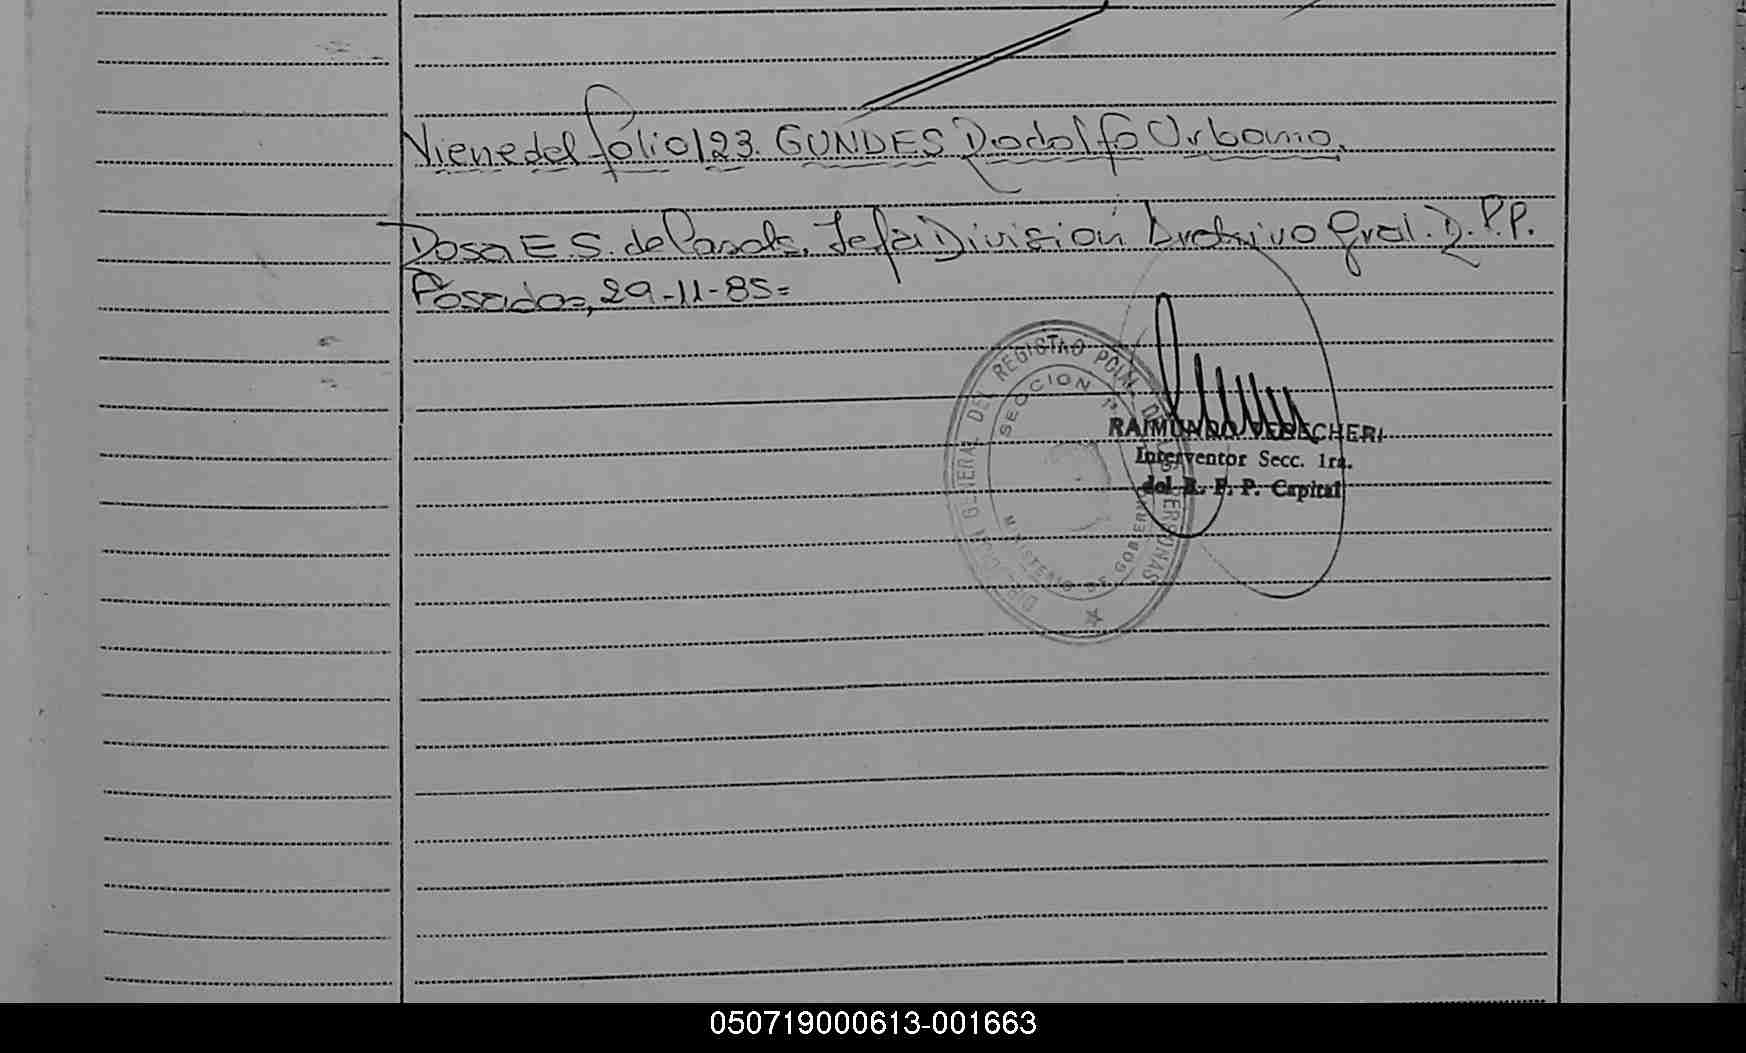 Viene del folio 123. GUNDES Rodolfo Urbano.
Rosa E. S. de Jefa División Archivo Gral. R.P.P.
Posadas, 29-11-85=
DIRECCION GENERAL DEL REGISTRO PCIAL DE LAS PERSONAS
SECCION 1ª
MINISTERIO DE GOBIERNO
RAIMUNDO
Interventor Secc. 1ra.
del R. P. P. Capital
050719000613-001663